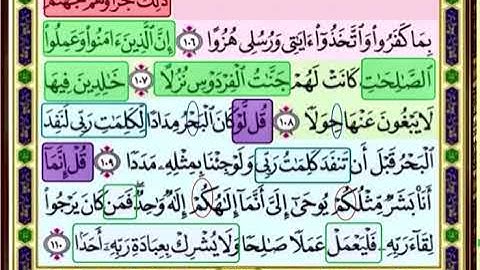 ذَٰلِكَ جَزَآؤُهُمْ جَهَنَّمُ
بِمَا كَفَرُوا۟ وَٱتَّخَذُوٓا۟ ءَايَٰتِى وَرُسُلِى هُزُوًا ١٠٦ إِنَّ ٱلَّذِينَ ءَامَنُوا۟ وَعَمِلُوا۟
ٱلصَّٰلِحَٰتِ كَانَتْ لَهُمْ جَنَّٰتُ ٱلْفِرْدَوْسِ نُزُلًا ١٠٧ خَٰلِدِينَ فِيهَا
لَا يَبْغُونَ عَنْهَا حِوَلًا ١٠٨ قُل لَّوْ كَانَ ٱلْبَحْرُ مِدَادًا لِّكَلِمَٰتِ رَبِّى لَنَفِدَ
ٱلْبَحْرُ قَبْلَ أَن تَنفَدَ كَلِمَٰتُ رَبِّى وَلَوْ جِئْنَا بِمِثْلِهِۦ مَدَدًا ١٠٩ قُلْ إِنَّمَآ
أَنَا۠ بَشَرٌ مِّثْلُكُمْ يُوحَىٰٓ إِلَىَّ أَنَّمَآ إِلَٰهُكُمْ إِلَٰهٌ وَٰحِدٌ فَمَن كَانَ يَرْجُوا۟
لِقَآءَ رَبِّهِۦ فَلْيَعْمَلْ عَمَلًا صَٰلِحًا وَلَا يُشْرِكْ بِعِبَادَةِ رَبِّهِۦٓ أَحَدًۢا ١١٠